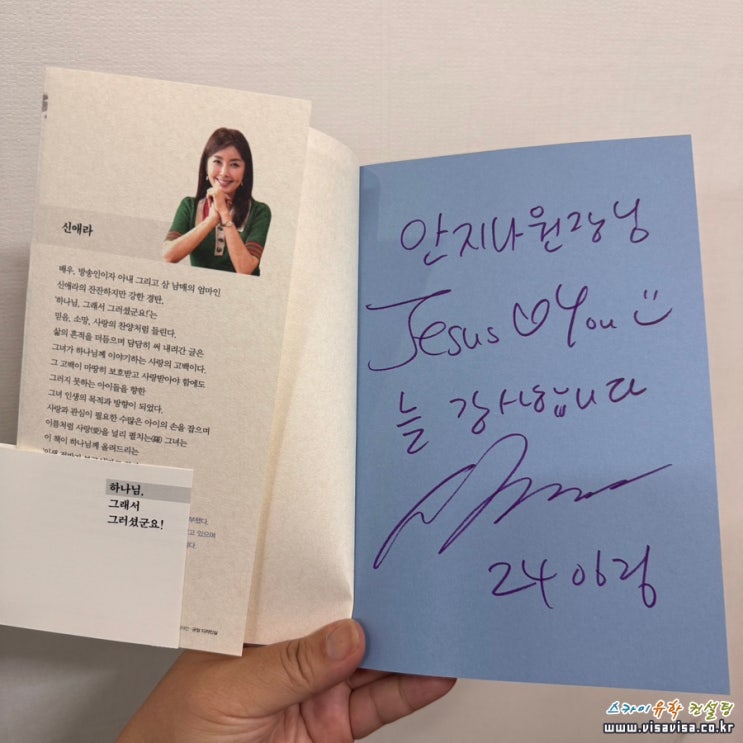 신애라
배우, 방송인이자 아내 그리고 삼 남매의 엄마인
신애라의 잔잔하지만 강한 경탄,
'하나님, 그래서 그러셨군요!'는
믿음, 소망, 사랑의 찬양처럼 들린다.
삶의 흔적을 더듬으며 담담히 써 내려간 글은
그녀가 하나님께 이야기하는 사랑의 고백이다.
그 고백이 마땅히 보호받고 사랑받아야 함에도
그러지 못하는 아이들을 향한
그녀 인생의 목적과 방향이 되었다.
사랑과 관심이 필요한 수많은 아이의 손을 잡으며
이름처럼 사랑(愛)을 널리 펼치는(羅) 그녀는
이 책이 하나님께 올려드리는
하나님,
그래서
그러셨군요!
안지나원장님
Jesus ♡ You
늘 감사합니다
24
스카이유학 컨설팅
www.visavisa.co.kr